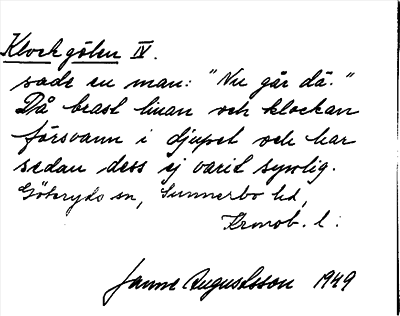 Klockgölen IV.
sade en man: "Nu går då."
Då brast linan och klockan
försvann i djupet och har
sedan dess ej varit synlig.
Göteryds sn, Sunnerbo hd,
Kronob. l:
Janne Augustsson 1949